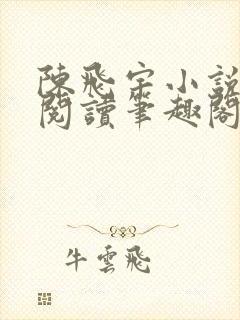 陳飛宇小說
閱讀筆趣閣
牛雲飛